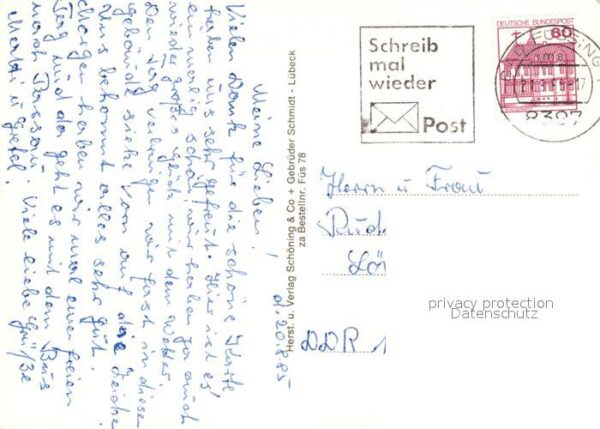 Meine Lieben!
d. 20.8.85
Vielen Dank für die schöne Karte
haben uns sehr gefreut. Hier ist es
einmalig schön, wir haben ja auch
wieder großes Glück mit dem Wetter.
Den Tag verbringen wir fast in diesem
gebäude siehe von auf die Zeichen
Uns bekommt alles sehr gut.
Morgen haben wir mal einen freien
Tag und da geht es mit dem Bus
nach Passau. Viele liebe Grüße
Herst. u. Verlag Schöning & Co + Gebrüder Schmidt - Lübeck
za Bestellnr. Füs 78
Schreib
mal
wieder
Post
DEUTSCHE BUNDESPOST
60
8397
Herrn u Frau
Rud
Lön
DDR 1
privacy protection
Datenschutz